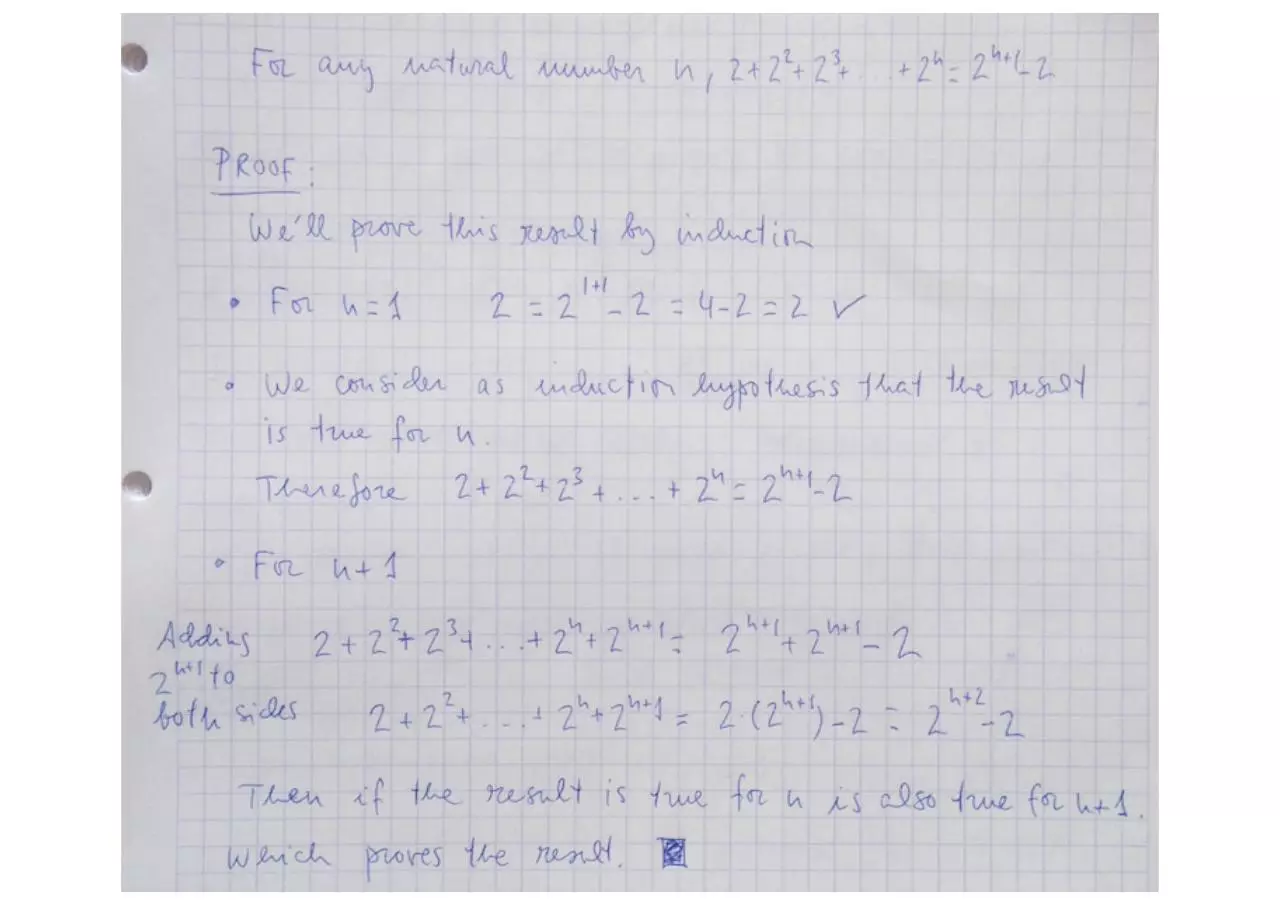 For any natural number n, 2+2²+2³+ ... +2ⁿ=2ⁿ⁺¹-2
PROOF:
We'll prove this result by induction
• For n=1 2 = 2¹⁺¹-2 = 4-2 = 2 ✓
• We consider as induction hypothesis that the result
is true for n.
Therefore 2+2²+2³+...+2ⁿ=2ⁿ⁺¹-2
• For n+1
Adding 2+2²+2³+...+2ⁿ+2ⁿ⁺¹= 2ⁿ⁺¹+2ⁿ⁺¹-2
2ⁿ⁺¹ to
both sides 2+2²+...+2ⁿ+2ⁿ⁺¹ = 2·(2ⁿ⁺¹)-2 = 2ⁿ⁺²-2
Then if the result is true for n is also true for n+1.
Which proves the result.